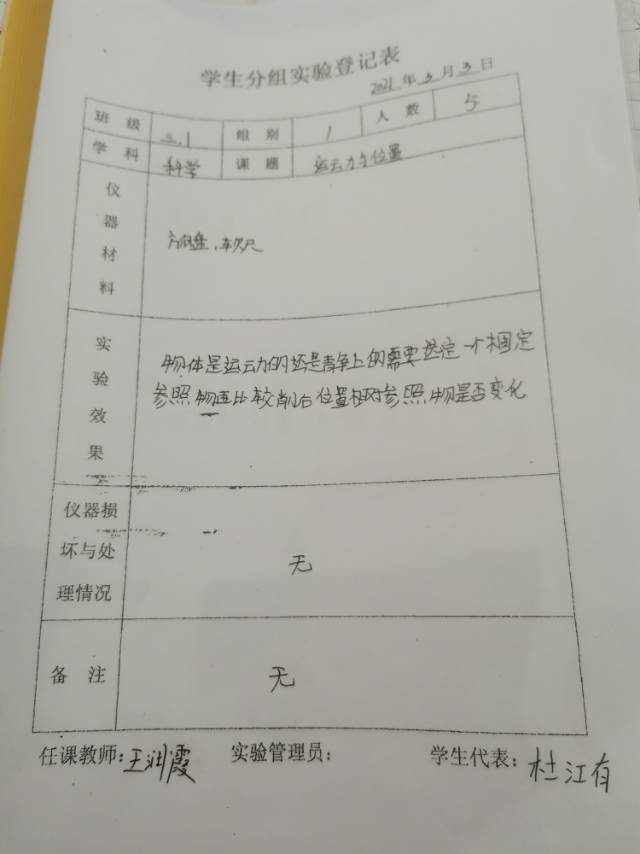 学生分组实验登记表
2021年3月3日
班级 三.1 组别 1 人数 5
学科 科学 课题 运动与位置
仪器材料 方向盘，软尺
实验效果 物体是运动的还是静止的需要选定一个固定
参照物再比较前后位置相对参照物是否变化
仪器损坏与处理情况 无
备注 无
任课教师：王润霞 实验管理员： 学生代表：杜江有